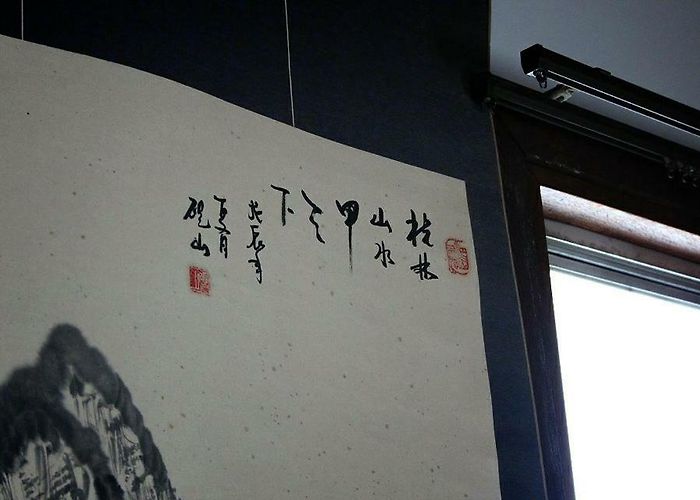 桂林
山水
甲
天
下
戊辰年
夏月
硯山